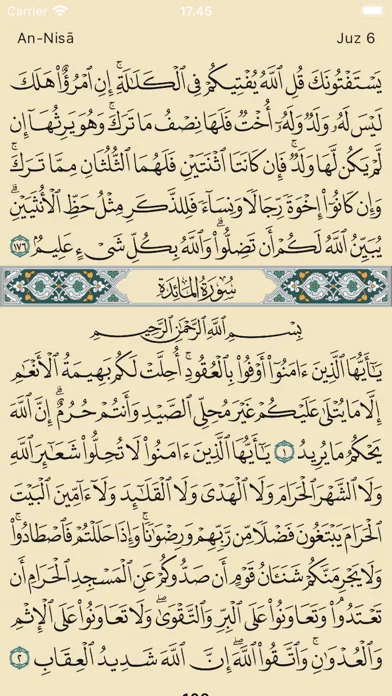 Carrier 17.45
An-Nisā Juz 6
يَسۡتَفۡتُونَكَ قُلِ ٱللَّهُ يُفۡتِيكُمۡ فِي ٱلۡكَلَٰلَةِۚ إِنِ ٱمۡرُؤٌاْ هَلَكَ
لَيۡسَ لَهُۥ وَلَدٞ وَلَهُۥٓ أُخۡتٞ فَلَهَا نِصۡفُ مَا تَرَكَۚ وَهُوَ يَرِثُهَآ إِن
لَّمۡ يَكُن لَّهَا وَلَدٞۚ فَإِن كَانَتَا ٱثۡنَتَيۡنِ فَلَهُمَا ٱلثُّلُثَانِ مِمَّا تَرَكَۚ
وَإِن كَانُوٓاْ إِخۡوَةٗ رِّجَالٗا وَنِسَآءٗ فَلِلذَّكَرِ مِثۡلُ حَظِّ ٱلۡأُنثَيَيۡنِۗ
يُبَيِّنُ ٱللَّهُ لَكُمۡ أَن تَضِلُّواْۗ وَٱللَّهُ بِكُلِّ شَيۡءٍ عَلِيمُۢ ١٧٦
سُورَةُ المَائِدَةِ
بِسۡمِ ٱللَّهِ ٱلرَّحۡمَٰنِ ٱلرَّحِيمِ
يَٰٓأَيُّهَا ٱلَّذِينَ ءَامَنُوٓاْ أَوۡفُواْ بِٱلۡعُقُودِۚ أُحِلَّتۡ لَكُم بَهِيمَةُ ٱلۡأَنۡعَٰمِ
إِلَّا مَا يُتۡلَىٰ عَلَيۡكُمۡ غَيۡرَ مُحِلِّي ٱلصَّيۡدِ وَأَنتُمۡ حُرُمٌۗ إِنَّ ٱللَّهَ
يَحۡكُمُ مَا يُرِيدُ ١ يَٰٓأَيُّهَا ٱلَّذِينَ ءَامَنُواْ لَا تُحِلُّواْ شَعَٰٓئِرَ ٱللَّهِ
وَلَا ٱلشَّهۡرَ ٱلۡحَرَامَ وَلَا ٱلۡهَدۡيَ وَلَا ٱلۡقَلَٰٓئِدَ وَلَآ ءَآمِّينَ ٱلۡبَيۡتَ
ٱلۡحَرَامَ يَبۡتَغُونَ فَضۡلٗا مِّن رَّبِّهِمۡ وَرِضۡوَٰنٗاۚ وَإِذَا حَلَلۡتُمۡ فَٱصۡطَادُواْۚ
وَلَا يَجۡرِمَنَّكُمۡ شَنَـَٔانُ قَوۡمٍ أَن صَدُّوكُمۡ عَنِ ٱلۡمَسۡجِدِ ٱلۡحَرَامِ أَن
تَعۡتَدُواْۘ وَتَعَاوَنُواْ عَلَى ٱلۡبِرِّ وَٱلتَّقۡوَىٰۖ وَلَا تَعَاوَنُواْ عَلَى ٱلۡإِثۡمِ
وَٱلۡعُدۡوَٰنِۚ وَٱتَّقُواْ ٱللَّهَۖ إِنَّ ٱللَّهَ شَدِيدُ ٱلۡعِقَابِ ٢